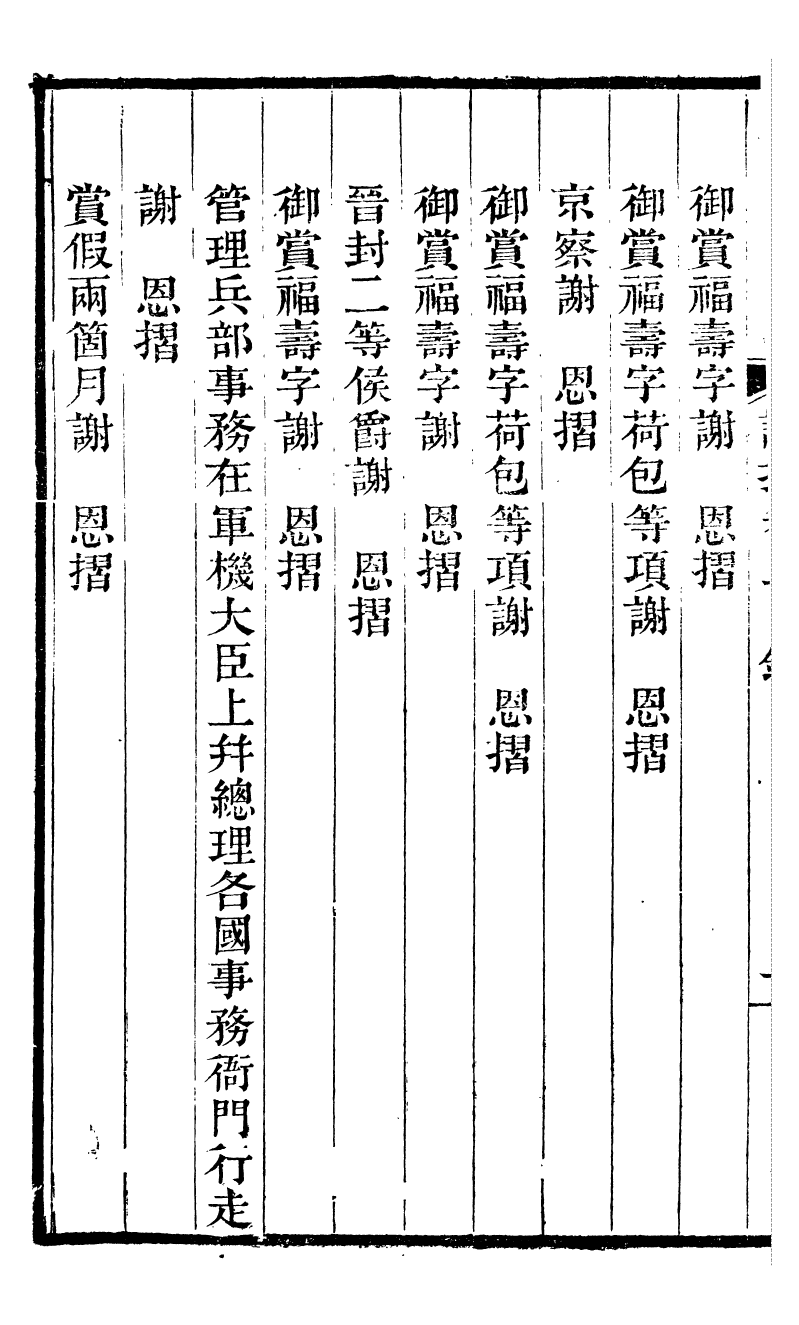 御賞福壽字謝　恩摺
御賞福壽字荷包等項謝　恩摺
京察謝　恩摺
御賞福壽字荷包等項謝　恩摺
御賞福壽字謝　恩摺
晉封二等侯爵謝　恩摺
御賞福壽字謝　恩摺
管理兵部事務在軍機大臣上幷總理各國事務衙門行走
謝　恩摺
賞假兩箇月謝　恩摺